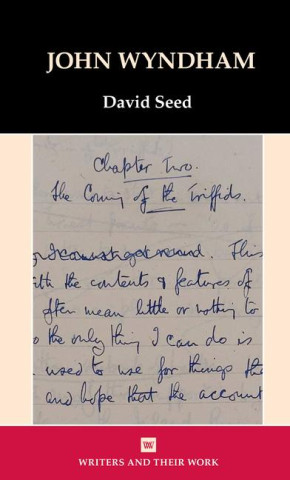 JOHN WYNDHAM
David Seed
Chapter Two.
The Coming of the Triffids.
This
ith the contents & features of
often mean little or nothing to
o the only thing I can do is
used to use for things the
and hope that the account
W
WRITERS AND THEIR WORK